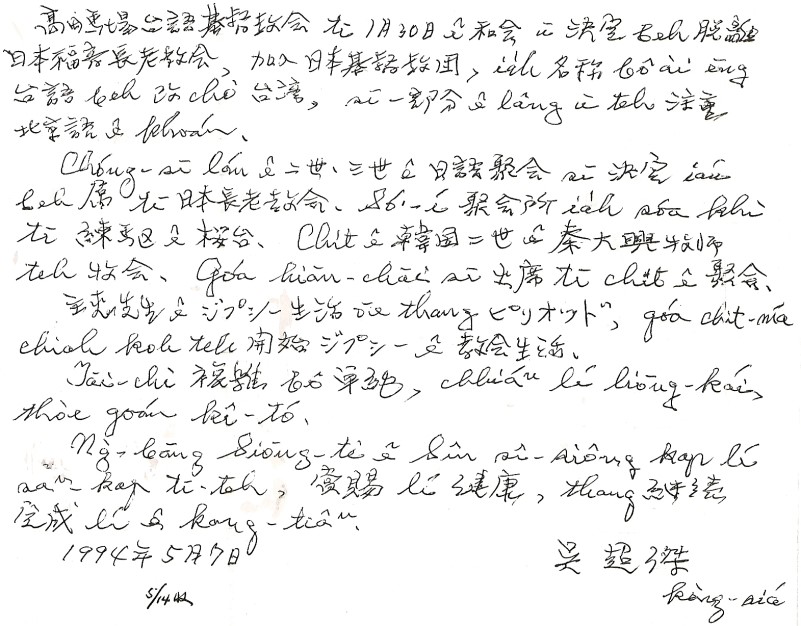 高田馬場台語基督教会 tī 1月30日 ê 和会 ū 決定 beh 脱離
日本福音長老教会, 加入日本基督教团, iáh 名称 bô ài ēng
台語 beh 改chò 台湾, sī 一部分 ê lâng ū teh 注重
北京語 ê khoán、
Chóng-sī lán ê 二世、三世 ê 日語聚会 sī 決定 iáu
beh 席 tī 日本長老教会、Só͘-í 聚会所 iáh sóa khì
tī 練馬区 ê 桜台、Chit ê 韓国二世 ê 秦大興牧師
teh 牧会、Góa hiān-chāi sī 出席 tī chit ê 聚会、
王先生 ê ジプシー生活 thang ピリオッド, góa chit-má
chiah koh teh 開始ジプシー ê 教会生活、
Tāi-chì 複雜 bô 単純, chhiáⁿ lí liōng-kái,
thòe goán kî-tó、
Ǹg-bāng Siōng-tè ê Sîn sî-siông kap lí
saⁿ-kap tī-teh, 賞賜 lí 健康, thang 継続
完成 lí ê kang-tiâⁿ、
1994年5月7日 吳超傑
5/14収 kèng-siá